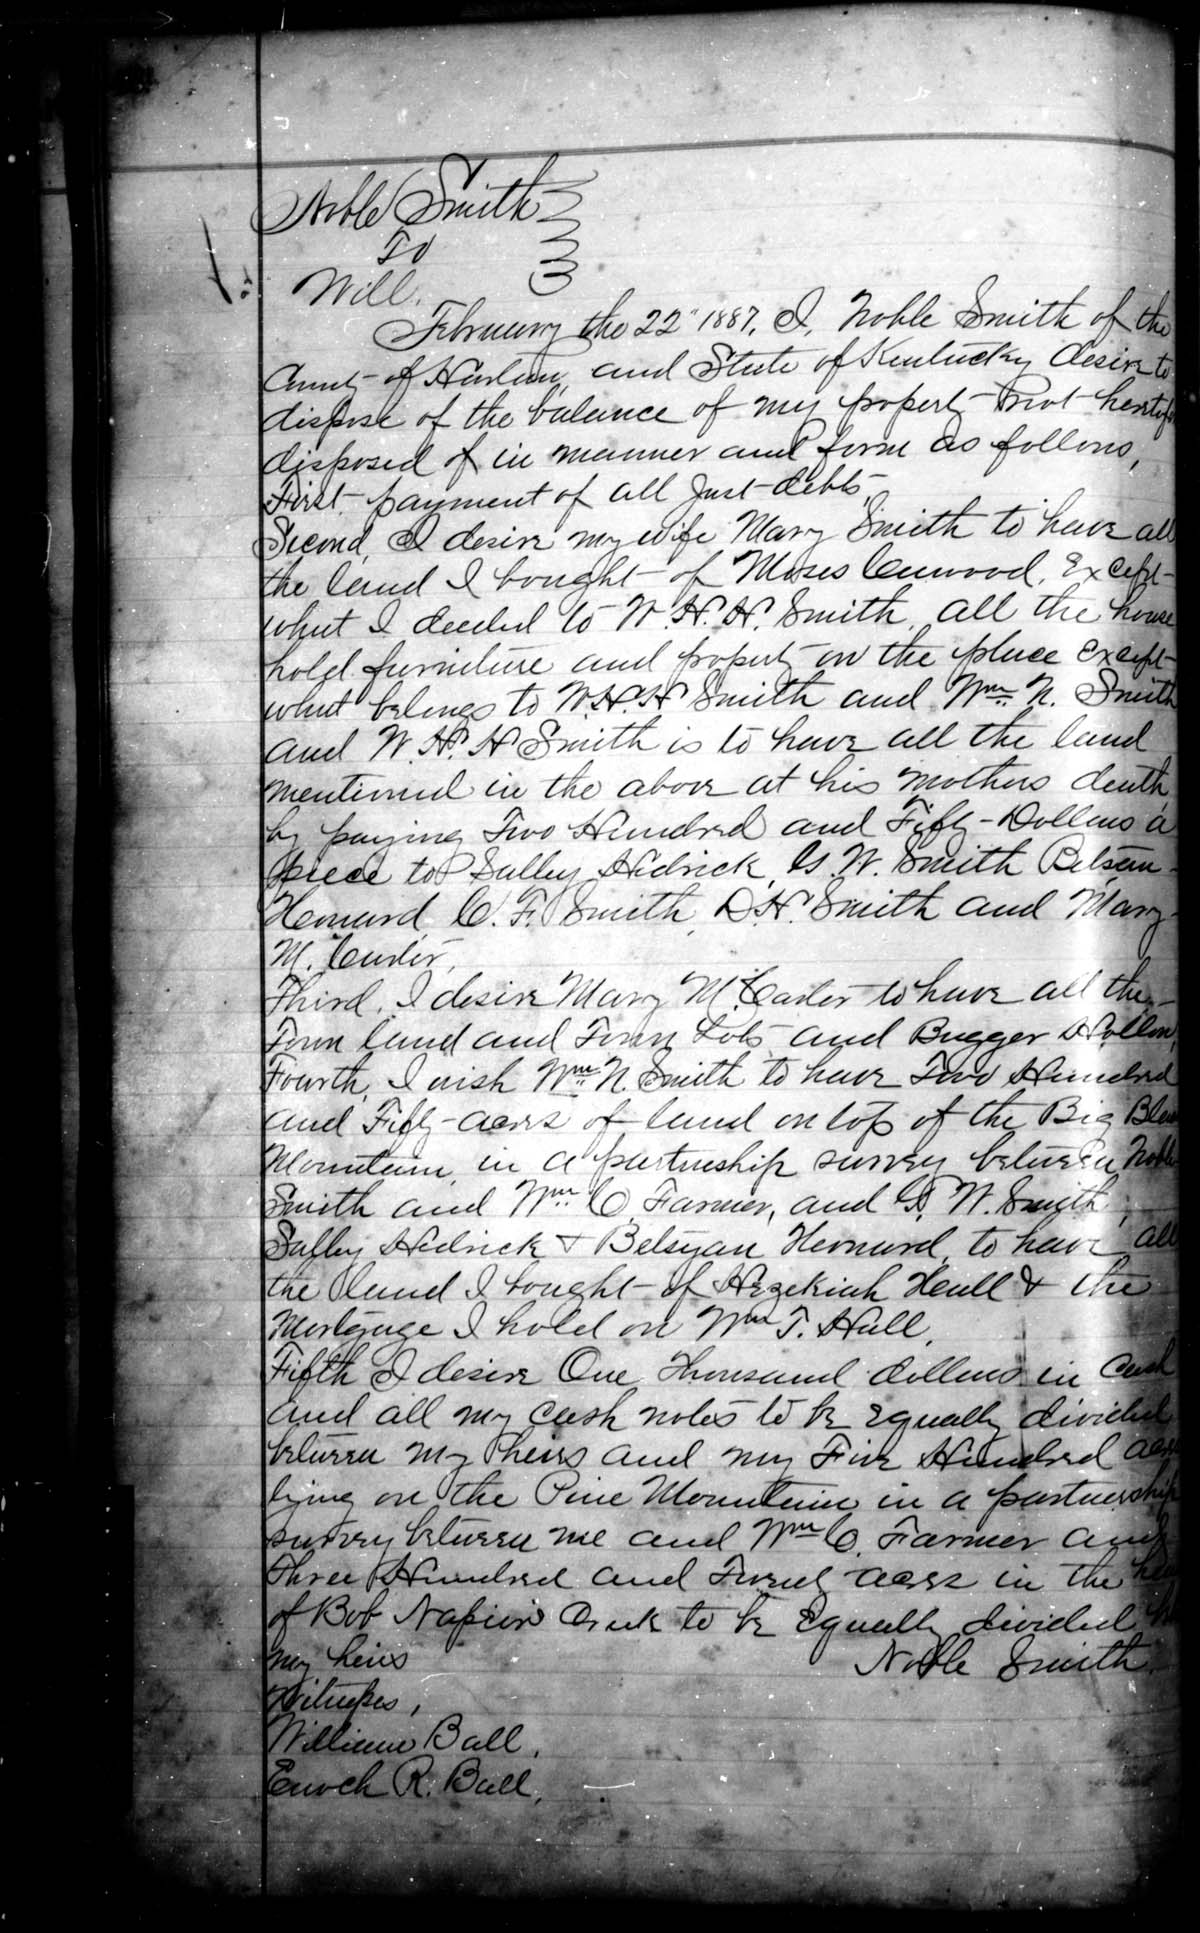 Noble Smith
To
Will.
February the 22" 1887, I, Noble Smith of the
County of Harlan, and State of Kentucky desire to
dispose of the balance of my property not heretofore
disposed of in manner and form as follows,
First, payment of all Just debts,
Second, I desire my wife Mary Smith to have all
the land I bought of Moses Cawood, Except
what I deeded to W. H. H. Smith, all the house
hold furniture and property on the place except
what belongs to W. H. H Smith and Wm. N. Smith
and W. H. H Smith is to have all the land
mentioned in the above at his mothers death,
by paying Two Hundred and Fifty Dollars a
piece to Salley Hedrick, G. W. Smith
Howard, C. F. Smith, D. H. Smith and Mary
M. Carter,
Third, I desire Mary M. Carter to have all the
Town land and Town Lots and Bugger Hollow,
Fourth, I wish Wm. N. Smith to have Two Hundred
and Fifty acres of land on top of the Big Black
Mountain, in a partnership survey between Noble
Smith and Wm. C. Farmer, and G. W. Smith,
Salley Hedrick & Betsyan Howard, to have all
the land I bought of Hezekiah Hall & the
Mortgage I hold on Wm T. Hall,
Fifth I desire One Thousand dollars in Cash
and all my cash notes to be Equally divided
between my heirs and my Five Hundred acres
lying on the Pine Mountain in a partnership
survey between me and Wm C. Farmer and
Three Hundred and Twenty acres in the head
of Bob Napier Creek to be Equally divided
my heirs
Noble Smith.
Witness,
William Ball,
Enoch R. Ball,